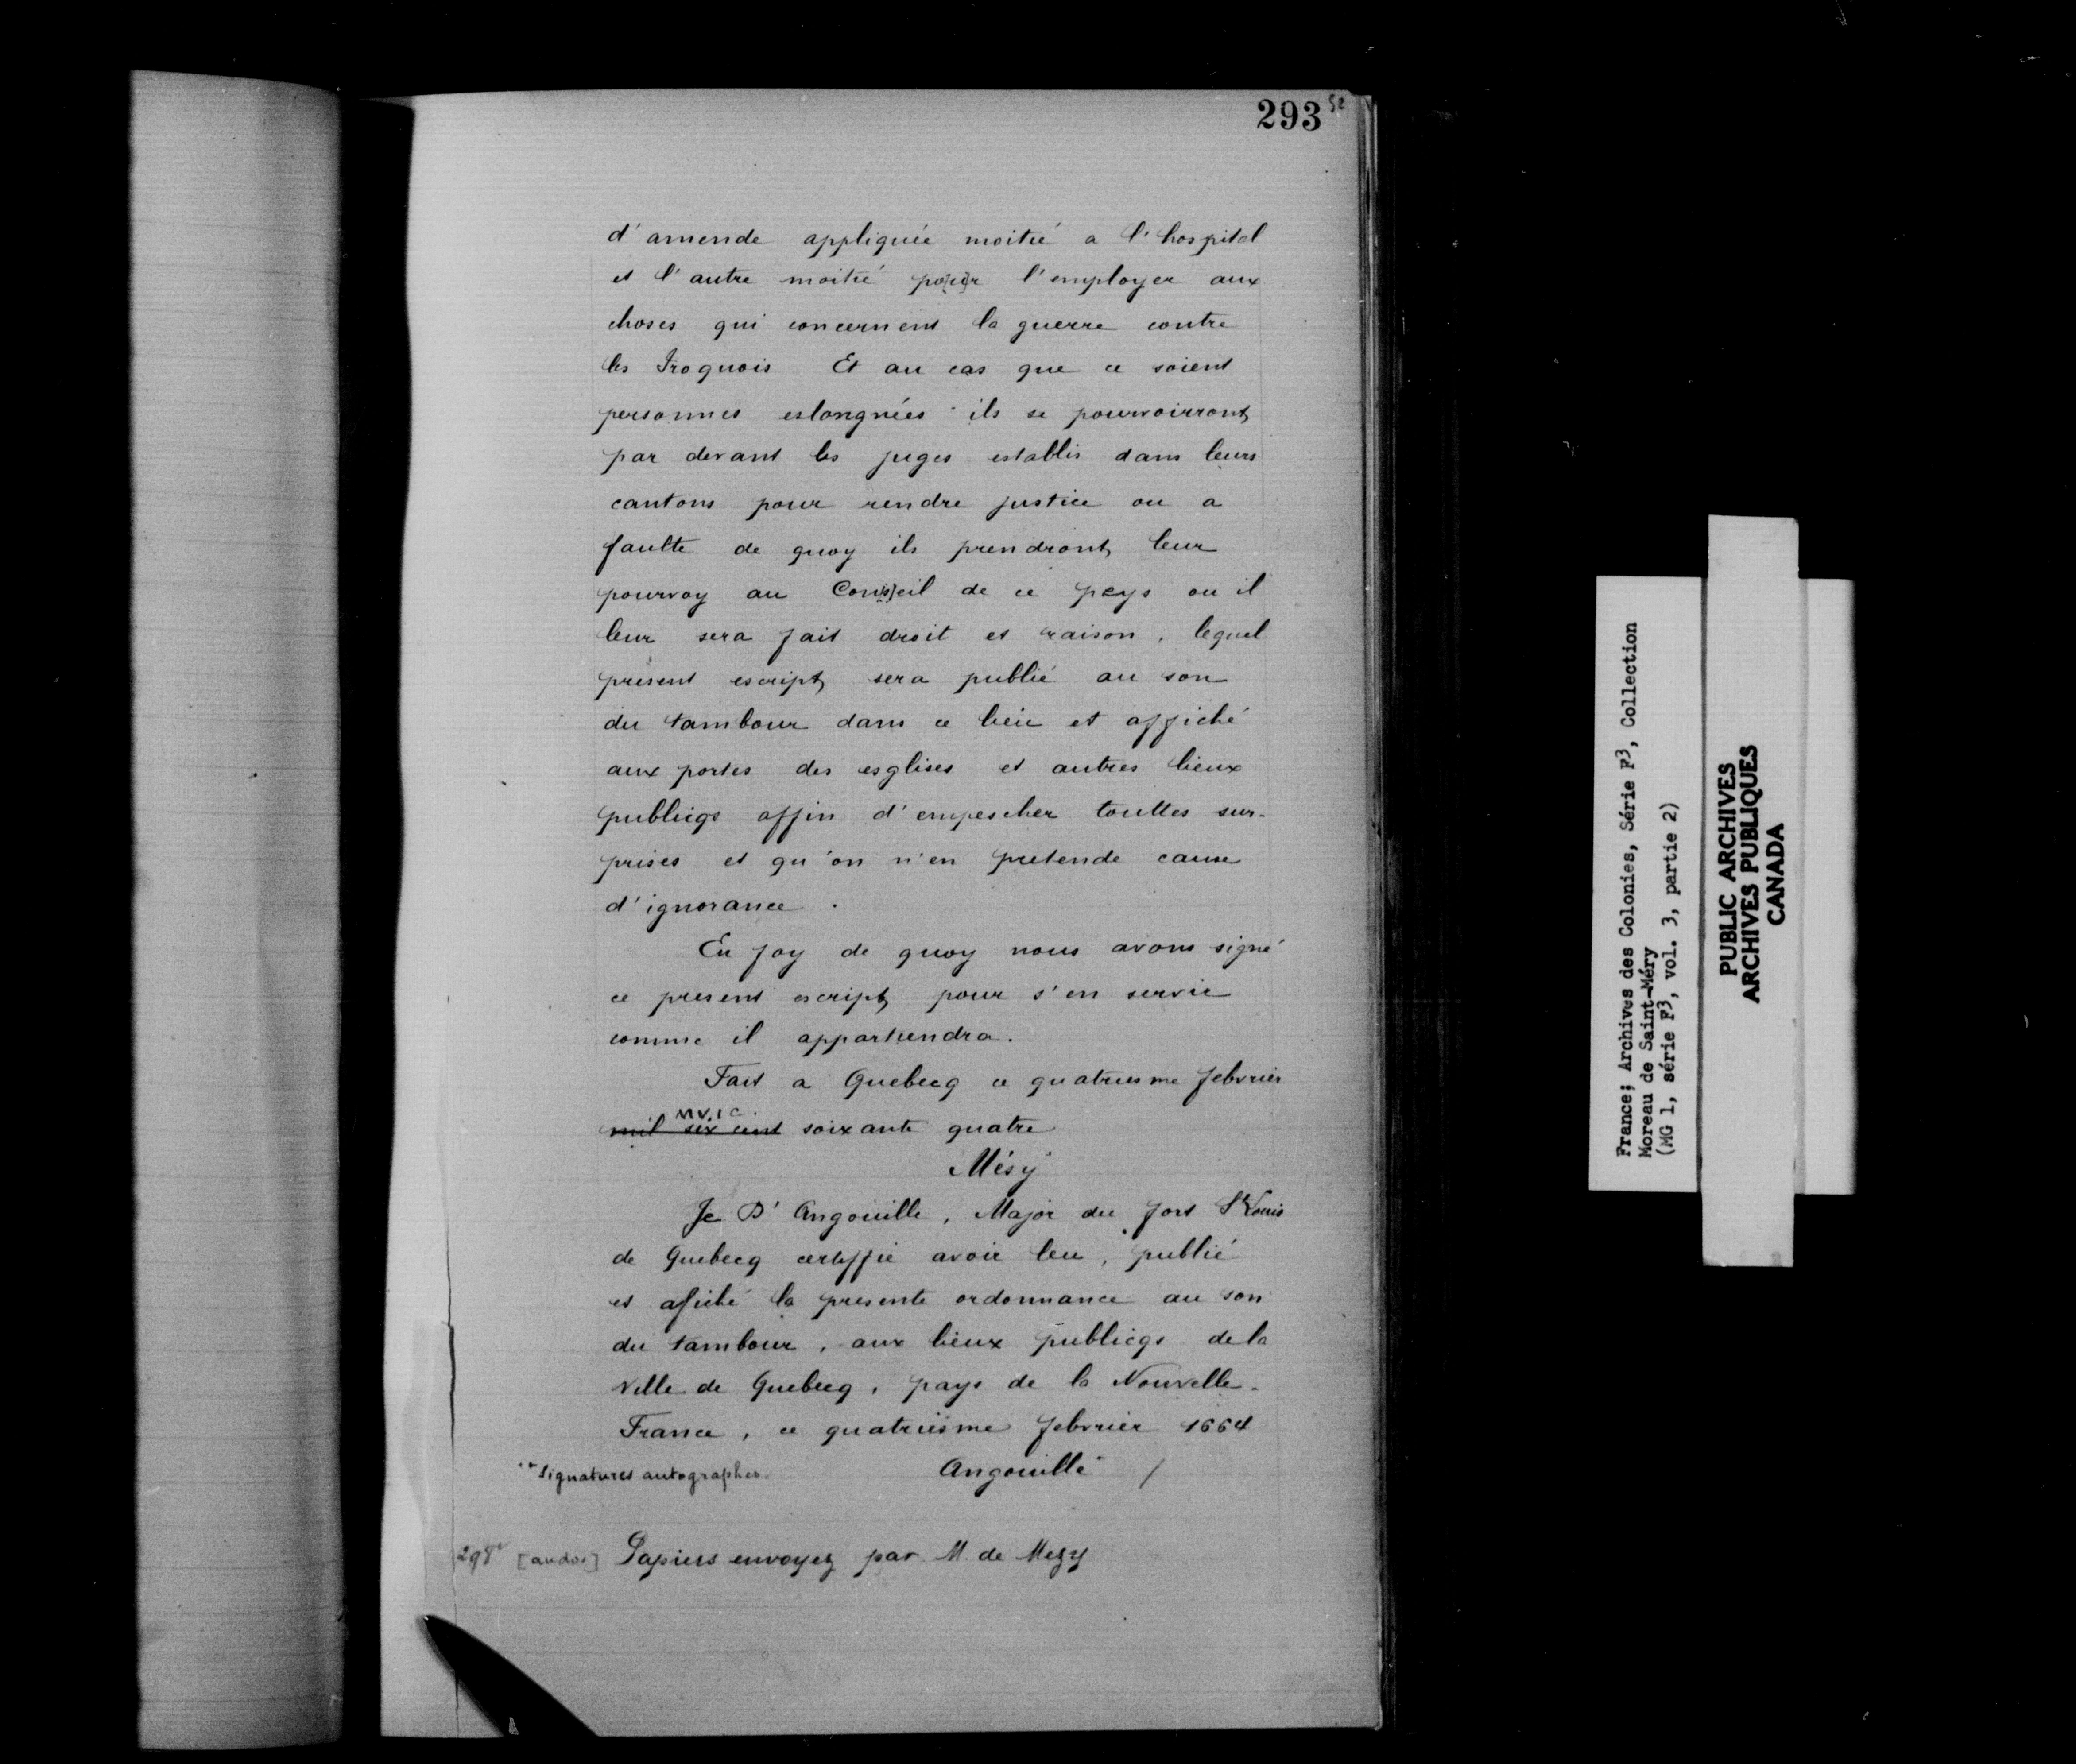 293 52
d'amende appliquée moitié a l'hospital
et l'autre moitié po[u]r l'employer aux
choses qui concernent la guerre contre
les Iroquois Et au cas que ce soient
personnes eslongnées ils se pourvoirront
par devant les juges establis dans leurs
cantons pour rendre justice ou a
faulte de quoy ils prendront leur
pourvoy au Con[s]eil de ce pays ou il
leur sera fait droit et raison, lequel
present escript sera publié au son
du tambour dans ce lieu et affiché
aux portes des esglises et autres lieux
publicqs affin d'empescher touttes sur-
prises et qu'on n'en pretende cause
d'ignorance.
En foy de quoy nous avons signé
ce present escript pour s'en servir
comme il appartiendra.
Fait a Quebecq ce quatriesme febvrier
MVIC
mil six cent soixante quatre
Mésÿ
Je D'Angouille, Major du fort St Louis
de Quebecq certiffie avoir leu, publié
et afiché la presente ordonnance au son
du tambour, aux lieux publicqs de la
ville de Quebecq, pays de la Nouvelle-
France, ce quatriesme febvrier 1664
Signatures autographes Angouille /
298v [au dos] Papiers envoyez par M. de Mezy
France; Archives des Colonies, Série F3, Collection
Moreau de Saint-Méry
(MG 1, série F3, vol. 3, partie 2)
PUBLIC ARCHIVES
ARCHIVES PUBLIQUES
CANADA